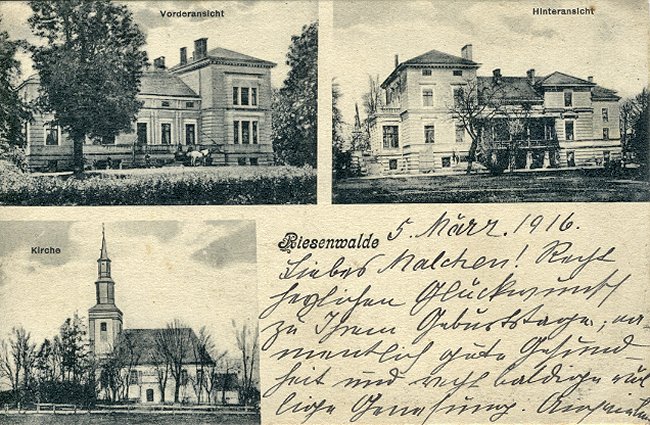 Vorderansicht
Hinteransicht
Kirche
Riesenwalde 5. März. 1916.
Liebes Malchen! Recht
herzlichen Glückwunsch
zu Ihrem Geburtstage, na-
mentlich gute Gesund-
heit und recht baldige völ-
lige Genesung.